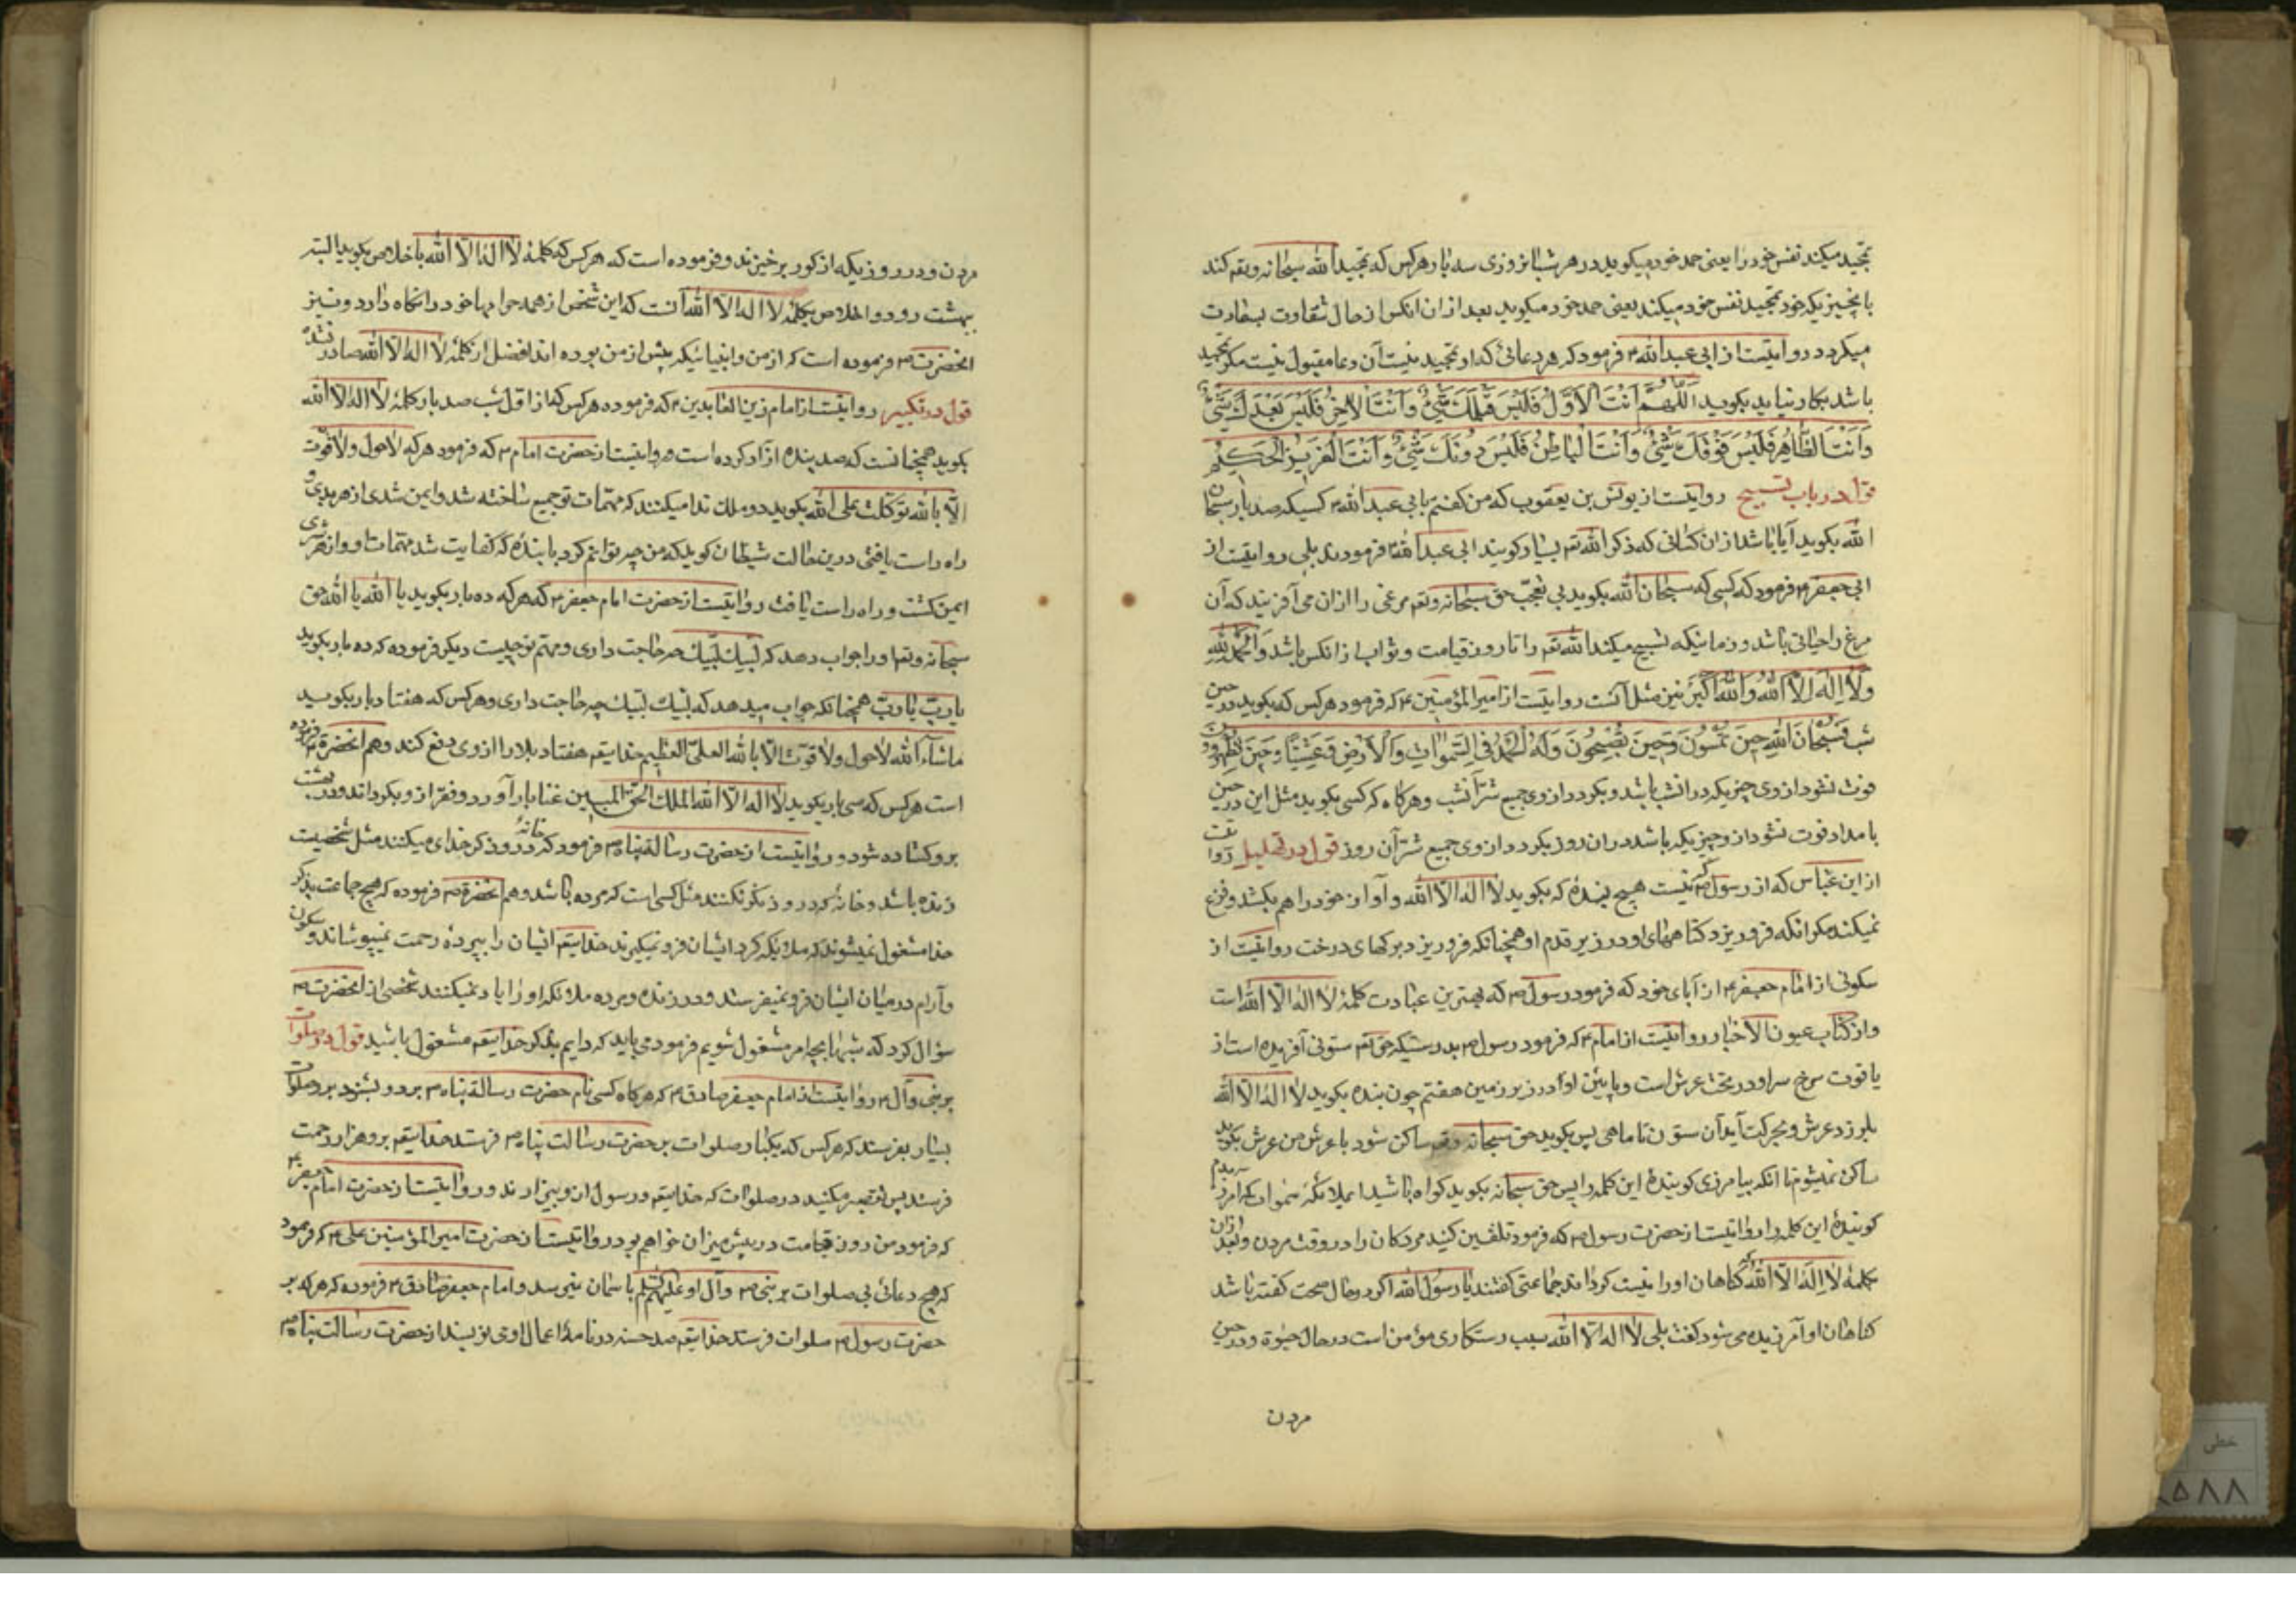 تمجید میکند نفس خود را یعنی حمد خود میکوید در هر شبانروزی سه بار هرکس که تمجید الله سبحانه وتعم کند
بانچیزیکه خود تمجید نفس خود میکند یعنی حمد خود میکوید بعد ازان انکس از حال شقاوت بسعادت
میکردد روایتست از ابی عبدالله ۴ فرمود که هر دعائی که او تمجید نیست آن دعا مقبول نیست مکر تمجید
باشد بکار نیاید بکوید اَللّٰهُمَّ اَنْتَ الْاَوَّلُ فَلَيْسَ قَبْلَكَ شَيْئٌ وَاَنْتَ الْاٰخِرُ فَلَيْسَ بَعْدَكَ شَيْئٌ
وَاَنْتَ الظَّاهِرُ فَلَيْسَ فَوْقَكَ شَيْئٌ وَاَنْتَ الْبَاطِنُ فَلَيْسَ دُونَكَ شَيْئٌ وَاَنْتَ الْعَزِيزُ الْحَكِيمُ
قول در باب تسبیح روایتست از یونس بن یعقوب که من کفتم بابی عبدالله ۴ کسیکه صد بار سبحان
الله بکوید آیا باشد ازان کسانی که ذکر الله تعم بسیار کویند ابی عبدالله ۴ فرمودند بلی روایتست از
ابی جعفر ۴ فرمود که کسی که سبحان الله بکوید بی تعجب حق سبحانه وتعم مرغی را ازان می آفریند که آن
مرغ را حیاتی باشد و زمانیکه تسبیح میکند الله تعم را تا روز قیامت وثواب ازانکس باشد وَالْحَمْدُ لِلّٰهِ
وَلَا اِلٰهَ اِلَّا اللّٰهُ وَاللّٰهُ اَكْبَرُ نیز مثل آنست روایتست از امیرالمؤمنین ۴ که فرمود هرکس که بکوید در حین
شب فَسُبْحَانَ اللّٰهِ حِينَ تُمْسُونَ وَحِينَ تُصْبِحُونَ وَلَهُ الْحَمْدُ فِي السَّمٰوَاتِ وَالْاَرْضِ وَعَشِيًّا وَحِينَ تُظْهِرُونَ
فوت نشود از وی چیزیکه در انشب باشد وبکردد از وی جمیع شر آنشب وهرکاه که کسی بکوید مثل این در حین
بامداد فوت نشود از و چیزیکه باشد دران روز بکردد از وی جمیع شر آن روز قول در تهلیل روایتست
از ابن عباس که از رسول ص نیست هیچ بنده که بکوید لا اله الا الله وآواز خود را هم بکشد وفزع
نمیکند مکر انکه فروریزد کناههای او در زیر قدم او همچنانکه فروریزد برکهای درخت روایتست از
سکونی از امام جعفر ۴ از آبای خود که فرمود رسول ص که بهترین عبادت کلمهٔ لا اله الا الله است
واز کتاب عیون الاخبار روایتست از امام ۴ که فرمود رسول ص بدرستیکه حق تعم ستونی آفریده است از
یاقوت سرخ سر او در تخت عرش است وپایین او در زیر زمین هفتم چون بنده بکوید لا اله الا الله
بلرزد عرش وبحرکت آید آن ستون تا ماهی پس بکوید حق سبحانه وتعم ساکن شود یا عرش من عرش بکوید
ساکن نمیشوم تا انکه بیامرزی کویندهٔ این کلمه را پس حق سبحانه بکوید کواه باشید ای ملائکهٔ سموات که امرزیدم
کویندهٔ این کلمه را روایتست از حضرت رسول ص که فرمود تلقین کنید مردکان را در وقت مردن وبعد ازان
کلمهٔ لا اله الا الله که کناهان او را نیست کرداند جماعتی کفتند یا رسول الله اکر در حال صحت کفته باشد
کناهان او آمرزیده می شود کفت بلی لا اله الا الله سبب رستکاری مؤمن است در حال حیوة ودر حین
مردن
مردن ودر روزیکه از کور برخیزند وفرموده است که هرکس که کلمهٔ لا اله الا الله باخلاص بکوید البته
بهشت رود واخلاص بکلمهٔ لا اله الا الله آنست که این شخص از همه حرامها خود را نکاه دارد ونیز
انحضرت ص فرموده است که از من وانبیائیکه پیش از من بوده اند افضل از کلمهٔ لا اله الا الله صادر نشده
قول در تکبیر روایتست از امام زین العابدین ۴ که فرمود هرکس که از اول شب صد بار کلمهٔ لا اله الا الله
بکوید همچنانست که صد بنده ازاد کرده است وروایتست از حضرت امام ۴ که فرمود هرکه لا حول ولا قوت
الا بالله توکلت علی الله بکوید دو ملک ندا میکنند که مهمات تو جمیع ساخته شد وایمن شدی از هر بدی و
راه راست یافتی درین حالت شیطان کوید که من چه توانم کرد با بندهٔ که کفایت شد مهمات او واز هر شری
ایمن کشت وراه راست یافت روایتست از حضرت امام جعفر ۴ که هرکه ده بار بکوید یا الله یا الله حق
سبحانه وتعم او را جواب دهد که لبیک لبیک چه حاجت داری ومهم تو چیست دیکر فرموده که ده بار بکوید
یا رب یا رب همچنانکه جواب میدهد که لبیک لبیک چه حاجت داری وهرکس که هفتاد بار بکوید
ماشاء الله لا حول ولا قوت الا بالله العلی العظیم خدایتعم هفتاد بلا را از وی دفع کند وهم انحضرة ۴ فرموده
است هرکس که سی بار بکوید لا اله الا الله الملک الحق المبین غنا بار آورد وفقر ازو بکرداند ودر بهشت
برو کشاده شود وروایتست از حضرت رسالة پناه ص فرمود که خانهٔ که درو ذکر خدای میکنند مثل شخصیت
زنده باشد وخانه که درو ذکر نکنند مثل کسی است که مرده باشد وهم انحضرة ص فرموده که هیچ جماعت بذکر
خدا مشغول نمیشوند که ملائکه کرد ایشان فرو نمیکیرند خدایتعم ایشان را بپردهٔ رحمت نمیپوشاند وسکون
وآرام در میان ایشان فرو نمیفرستد ودر زنده ومرده ملائکه او را یاد نمیکنند شخصی از انحضرت ص
سؤال کرد که شبها بچه امر مشغول شویم فرمود می باید که دایم بذکر خدایتعم مشغول باشید قول در صلوات
بر نبی وآل ۴ روایتست از امام جعفر صادق ۴ که هرکاه کسی نام حضرت رسالة پناه ص برد وبشنود برو صلوات
بسیار بفرستد که هرکس که یکبار صلوات بر حضرت رسالت پناه ص فرستد خدایتعم برو هزار رحمت
فرستد پس تقصیر میکنید در صلوات که خدایتعم ورسول ازو بیزارند وروایتست از حضرت امام جعفر ۴
که فرمود من روز قیامت در پیش میزان خواهم بود روایتست از حضرت امیرالمؤمنین علی ۴ که فرمود
که هیچ دعائی بی صلوات بر نبی ص وآل او علیهم السلم باسمان نمی رسد وامام جعفر صادق ۴ فرموده که هرکه بر
حضرت رسول ص صلوات فرستد خدایتعم صد حسنه در نامهٔ اعمال اومی نویسند از حضرت رسالت پناه ص
خطی
۸۵۸۸